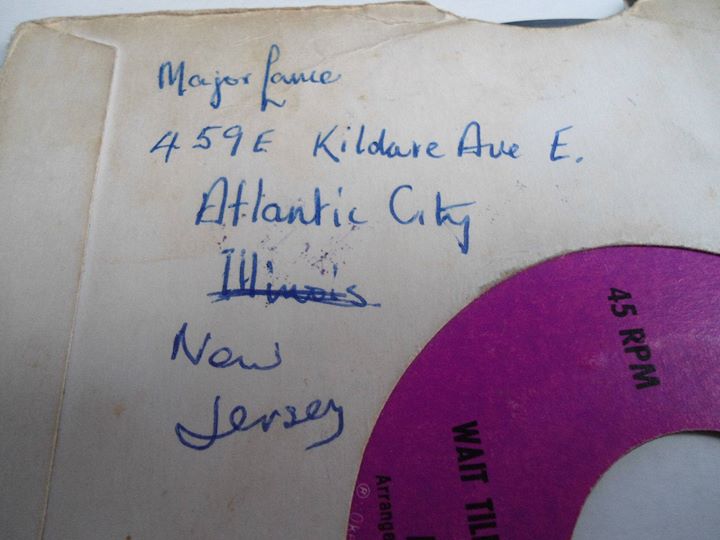 Major Lance
459E Kildare Ave E.
Atlantic City
Illinois
New
Jersey
45 RPM
WAIT TILL
Arrange
℗ Ok